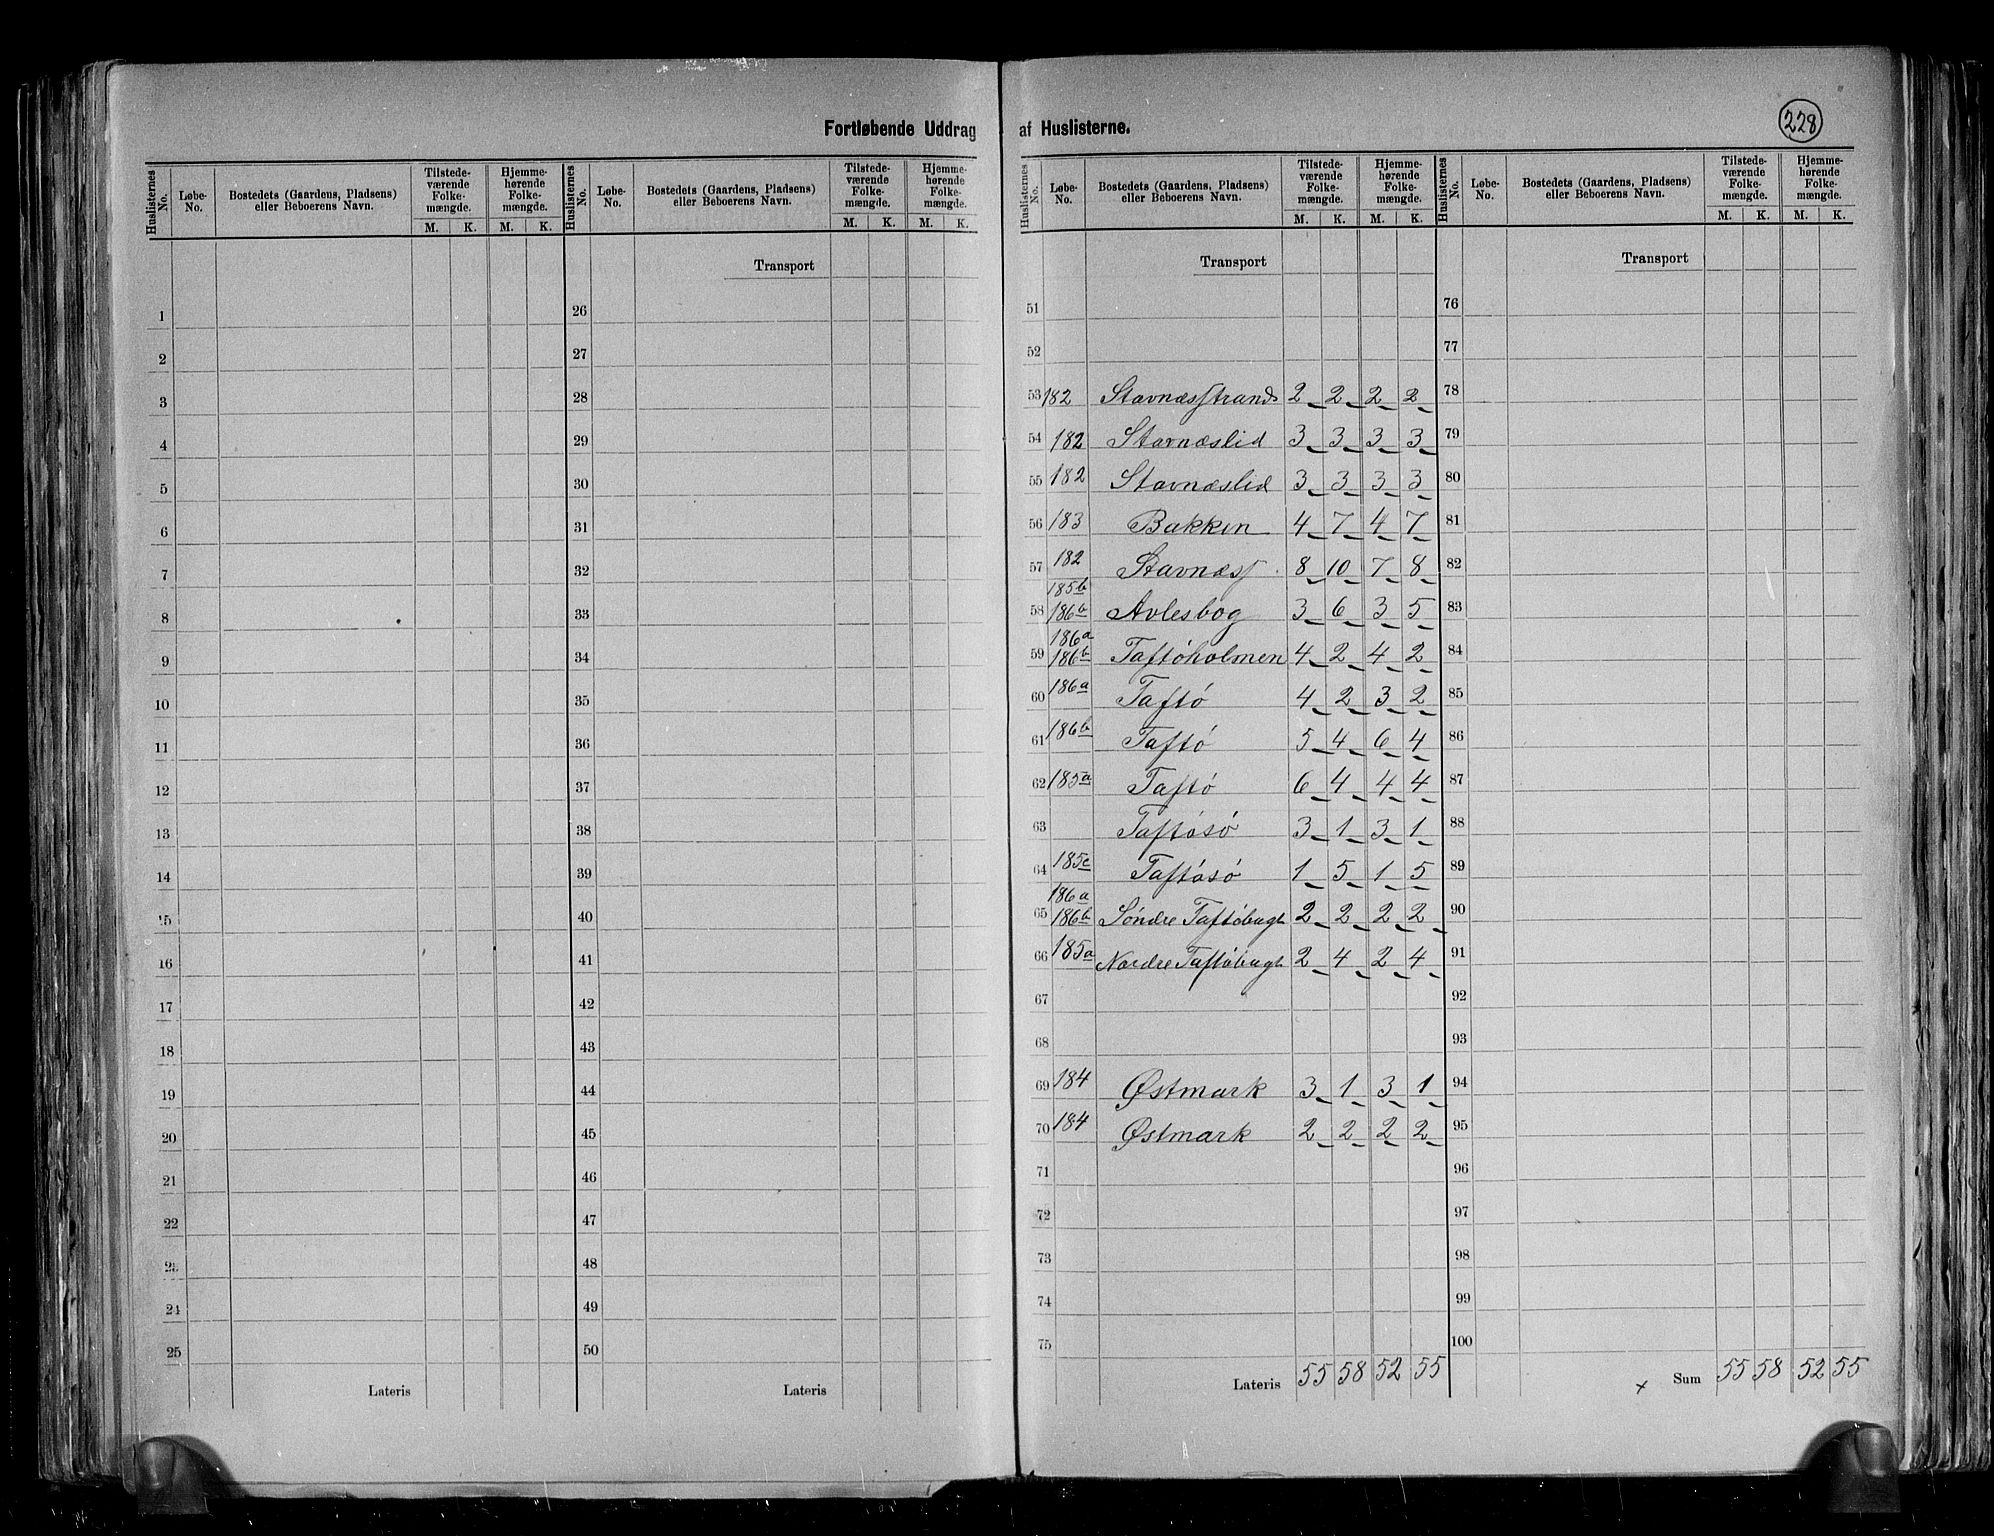 Fortløbende Uddrag af Huslisterne.
228
Huslisternes No. Løbe-No. Bostedets (Gaardens, Pladsens) eller Beboerens Navn. Tilstede-værende Folke-mængde. M. K. Hjemme-hørende Folke-mængde. M. K.
Huslisternes No. Løbe-No. Bostedets (Gaardens, Pladsens) eller Beboerens Navn. Tilstede-værende Folke-mængde. M. K. Hjemme-hørende Folke-mængde. M. K.
Huslisternes No. Løbe-No. Bostedets (Gaardens, Pladsens) eller Beboerens Navn. Tilstede-værende Folke-mængde. M. K. Hjemme-hørende Folke-mængde. M. K.
Huslisternes No. Løbe-No. Bostedets (Gaardens, Pladsens) eller Beboerens Navn. Tilstede-værende Folke-mængde. M. K. Hjemme-hørende Folke-mængde. M. K.
1
2
3
4
5
6
7
8
9
10
11
12
13
14
15
16
17
18
19
20
21
22
23
24
25
Lateris
Transport
26
27
28
29
30
31
32
33
34
35
36
37
38
39
40
41
42
43
44
45
46
47
48
49
50
Lateris
Transport
51
52
53 182 Stavnæsstrand 2 2 2 2
54 182 Stavnæslid 3 3 3 3
55 182 Stavnæslid 3 3 3 3
56 183 Bakken 4 7 4 7
57 182 Stavnæss 8 10 7 8
185b
58 186b Avlesbog 3 6 3 5
186a
59 186b Taftøholmen 4 2 4 2
60 186a Taftø 4 2 3 2
61 186b Taftø 5 4 6 4
62 185a Taftø 6 4 4 4
63 Taftøsø 3 1 3 1
64 185c Taftøsø 1 5 1 5
186a
65 186b Søndre Taftøbugt 2 2 2 2
66 185a Nordre Taftøbugt 2 4 2 4
67
68
69 184 Østmark 3 1 3 1
70 184 Østmark 2 2 2 2
71
72
73
74
75
Lateris 55 58 52 55
Transport
76
77
78
79
80
81
82
83
84
85
86
87
88
89
90
91
92
93
94
95
96
97
98
99
100
× Sum 55 58 52 55